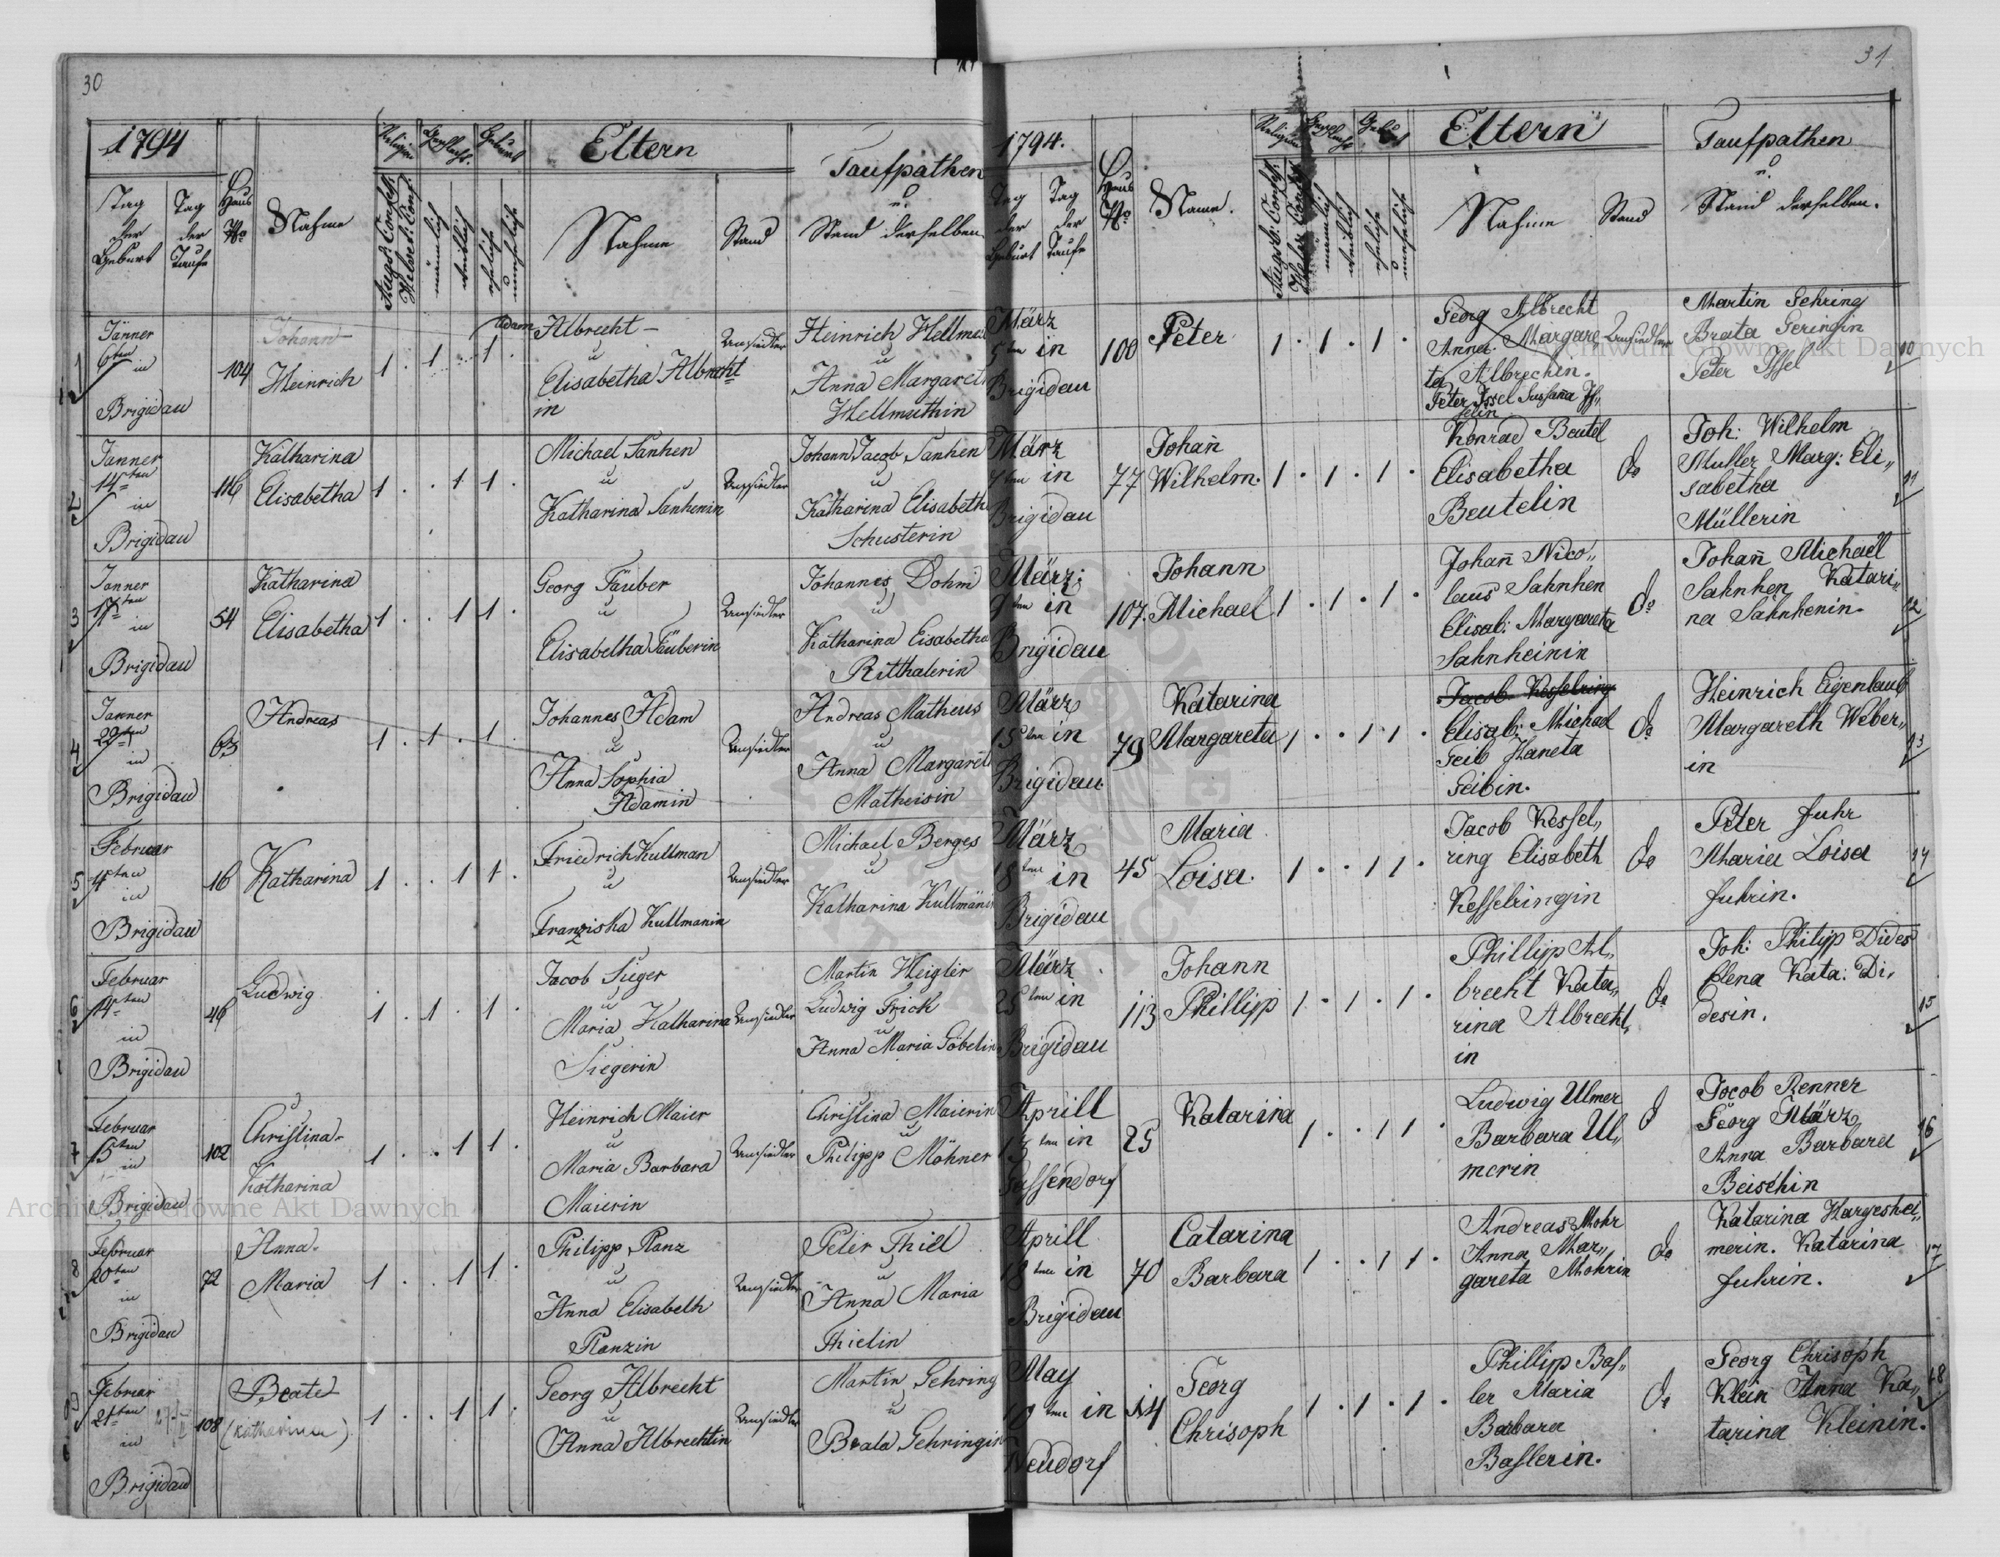 30
1794
Religion
Geschlecht
Geburt
Eltern
Taufpathen
u.
Stand derselben
Tag der Geburt
Tag der Taufe
Haus No
Nahme
Augsb. Confess.
Helvet. Conf.
männlich
weiblich
eheliche
uneheliche
Nahme
Stand
1
Jänner
6ten in
Brigidau
104
Johann
Heinrich
1 . 1 . 1 .
Adam
Albrecht
u
Elisabetha Albrecht
in
Ansiedler
Heinrich Hellmu
u
Anna Margaret
Hellmuthin
2
Janner
14ten
in
Brigidau
116
Katharina
Elisabetha
1 . . 1 1 .
Michael Sanhen
u
Katharina Sanhenin
Ansiedler
Johann Jacob Sanhen
u
Katharina Elisabeth
Schusterin
3
Janner
17ten
in
Brigidau
54
Katharina
Elisabetha
1 . . 1 1 .
Georg Täuber
u
Elisabetha Täuberin
Ansiedler
Johannes Dohm
u
Katharina Eisabetha
Ritthalerin
4
Janner
29ten
in
Brigidau
63
Andreas
1 . 1 . 1 .
Johannes Adam
u
Anna Sophia
Adamin
Ansiedler
Andreas Matheus
u
Anna Margaret
Matheisin
5
Februar
4ten
in
Brigidau
16
Katharina
1 . . 1 1 .
Friedrich Kullman
u
Franziska Kullmanin
Ansiedler
Michael Berges
u
Katharina Kullmäni
6
Februar
14ten
in
Brigidau
46
Ludwig
1 . 1 . 1 .
Jacob Sieger
u
Maria Katharina
Siegerin
Ansiedler
Martin Heigler
Ludwig Frick
u
Anna Maria Göbelin
7
Februar
15ten
in
Brigidau
102
Christina
Katharina
1 . . 1 1 .
Heinrich Maier
u
Maria Barbara
Maierin
Ansiedler
Christina Maierin
u
Philipp Möhner
8
Februar
20ten
in
Brigidau
72
Anna
Maria
1 . . 1 1 .
Philipp Ranz
u
Anna Elisabeth
Ranzin
Ansiedler
Peter Thiel
u
Anna Maria
Thielin
9
Februar
21ten
in
Brigidau
108
Beate
(Katharina)
1 . . 1 1 .
Georg Albrecht
u
Anna Albrechtin
Ansiedler
Martin Gehring
u
Beata Gehringin
31
1794.
Religion
Geschlecht
Geburt
Eltern
Taufpathen
u.
Stand derselben.
Tag der Geburt
Tag der Taufe
Haus No
Name.
Augsb. Confess.
Helvet. Confes
männlich
weiblich
eheliche
uneheliche
Nahme
Stand
März
5ten in
Brigidau
100
Peter
1 . 1 . 1 .
Georg Albrecht
Anna Margare
ta Albrechin.
Peter Issel Susana Is„
selin
Ansiedler
Martin Gehring
Beata Geringin
Peter Issel
10
März
7ten in
Brigidau
77
Johan̄
Wilhelm.
1 . 1 . 1 .
Konrad Beutel
Elisabetha
Beutelin
do
Joh: Wilhelm
Muller Marg: Eli„
sabetha
Müllerin
11
März
9ten in
Brigidau
107.
Johann
Michael
1 . 1 . 1 .
Johan̄ Nico„
laus Sahnhen
Elisab: Margareta
Sahnheinin
do
Johan̄ Michael
Sahnhen Katari„
na Sahnhenin.
12
März
15ten in
Brigidau.
79
Katarina
Margareta
1 . . 1 1 .
Jacob Kesselring
Elisab: Michael
Geib Haneta
Geibin.
do
Heinrich Eigenlaub
Margareth Weber„
in
13
März
18ten in
Brigidau
45
Maria
Loisa.
1 . . 1 1 .
Jacob Kessel„
ring Elisabeth
Kesselringin
do
Peter Fuhr
Maria Loisa
Fuhrin.
14
März
25ten in
Brigidau
113
Johann
Phillipp
1 . 1 . 1 .
Phillipp Al„
brecht Kata„
rina Albrecht„
in
do
Joh: Philipp Dides
Elena Kata: Di„
desin.
15
Aprill
13ten in
Gassendorf
25
Katarina
1 . . 1 1 .
Ludwig Ulmer
Barbara Ul„
merin
d
Jocob Renner
Georg März
Anna Barbara
Beischin
16
Aprill
18ten in
Brigidau
70
Catarina
Barbara
1 . . 1 1 .
Andreas Mohr
Anna Mar„
gareta Mohrin
do
Katarina Hargeshei„
merin. Katarina
Fuhrin.
17
May
10ten in
Neudorf
14
Georg
Chrisoph
1 . 1 . 1 .
Phillipp Bas„
ler Maria
Barbara
Baslerin.
do
Georg Chrisoph
Klein Anna Ka„
tarina Kleinin.
18
Archiwum Główne Akt Dawnych
Archiwum Główne Akt Dawnych